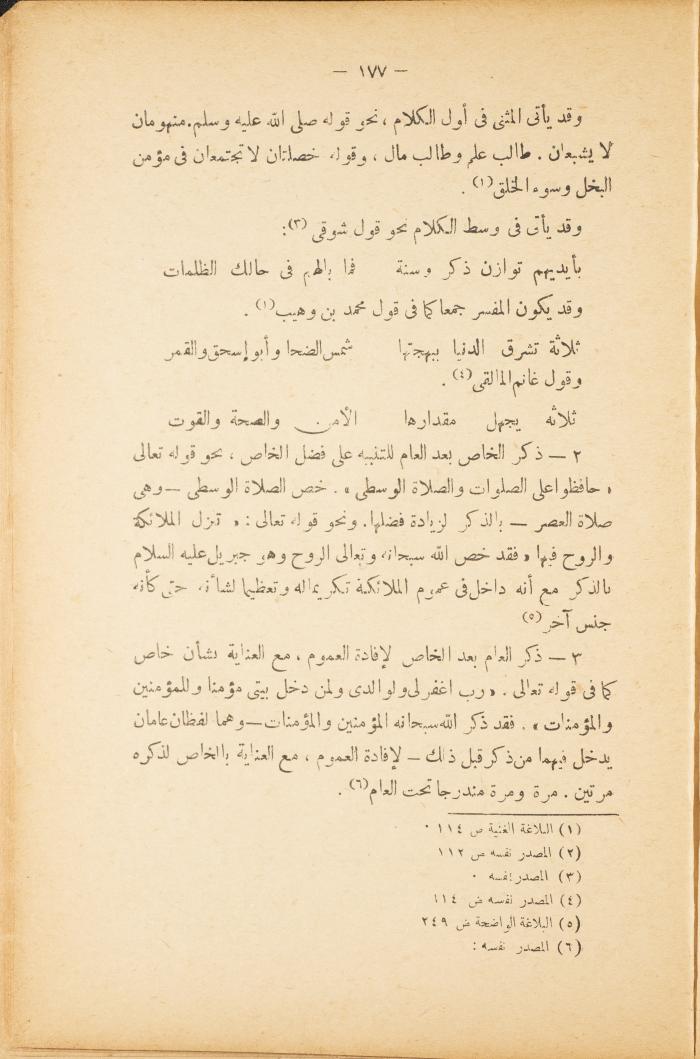 — ١٧٧ —
وقد يأتى المثنى فى أول الكلام ، نحو قوله صلى الله عليه وسلم. منهومان
لا يشبعان . طالب علم وطالب مال ، وقوله خصلتان لا تجتمعان فى مؤمن
البخل وسوء الخلق(١) .
وقد يأتى فى وسط الكلام نحو قول شوقى (٣):
بأيديهم توازن ذكر وسنة فما بالهم فى حالك الظلمات
وقد يكون المفسر جمعا كما فى قول محمد بن وهيب(١) .
ثلاثة تشرق الدنيا ببهجتها شمس الضحا وأبو إسحق والقمر
وقول غانم المالقى(٤) .
ثلاثه يجهل مقدارها الأمن والصحة والقوت
٢ — ذكر الخاص بعد العام للتنبيه على فضل الخاص ، نحو قوله تعالى
« حافظوا على الصلوات والصلاة الوسطى » . خص الصلاة الوسطى — وهى
صلاة العصر — بالذكر لزيادة فضلها. ونحو قوله تعالى : « تنزل الملائكة
والروح فيها » فقد خص الله سبحانه وتعالى الروح وهو جبريل عليه السلام
بالذكر مع أنه داخل فى عموم الملائكة تكريما له وتعظيما لشأنه حتى كأنه
جنس آخر(٥)
٣ — ذكر العام بعد الخاص لإفادة العموم ، مع العناية بشأن خاص
كما فى قوله تعالى . « رب اغفر لى ولوالدى ولمن دخل بيتى مؤمنا وللمؤمنين
والمؤمنات » . فقد ذكر الله سبحانه المؤمنين والمؤمنات — وهما لفظان عامان
يدخل فيهما من ذكر قبل ذلك — لإفادة العموم ، مع العناية بالخاص لذكره
مرتين . مرة ومرة مندرجا تحت العام(٦) .
(١) البلاغة الغنية ص ١١٤ .
(٢) المصدر نفسه ص ١١٢
(٣) المصدر نفسه .
(٤) المصدر نفسه ض ١١٤
(٥) البلاغة الواضحة ض ٢٤٩
(٦) المصدر نفسه :